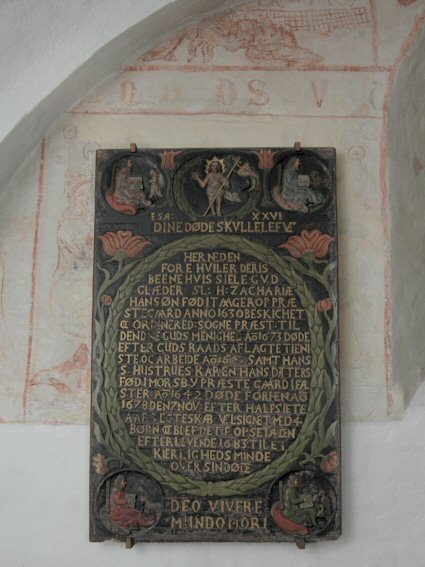 ESA: XXVI
DINE DØDE SKULLE LEFVE
HER NEDEN
FORE HVILER DERIS
BEENE HVIS SIELE GVD
GLÆDER SL: H: ZACHARIÆ
HANSØN FØDT I AAGEROP PRÆ
STEGAARD ANNO 1630 BESKICHET
OC ORDINERED SOGNE PRÆST TIL
DENNE GUDS MENIGHED Aº 1673 DØDE
EFTER GUDS RAADS AFLAGTE TIENI
STE OC ARBEIDE Aº SAMT HANS
S: HUSTRUES KAREN HANS DATERS
FØD I MORSBY PRÆSTEGAARD I FAL
STER Aº 1642 DØDE FORHEN Aº
1678 DEN 7 NOV: EFTER HALFSIETE
AARS EGTESKAB VELSIGNET MED 4
BØRN OC BLEF DETTE OPSET AF DEN
EFTERLEVENDE 1683 TIL EN
KIERLIGHEDS MINDE
OVER SIN DØDE
DEO VIVERE
MUNDO MORI